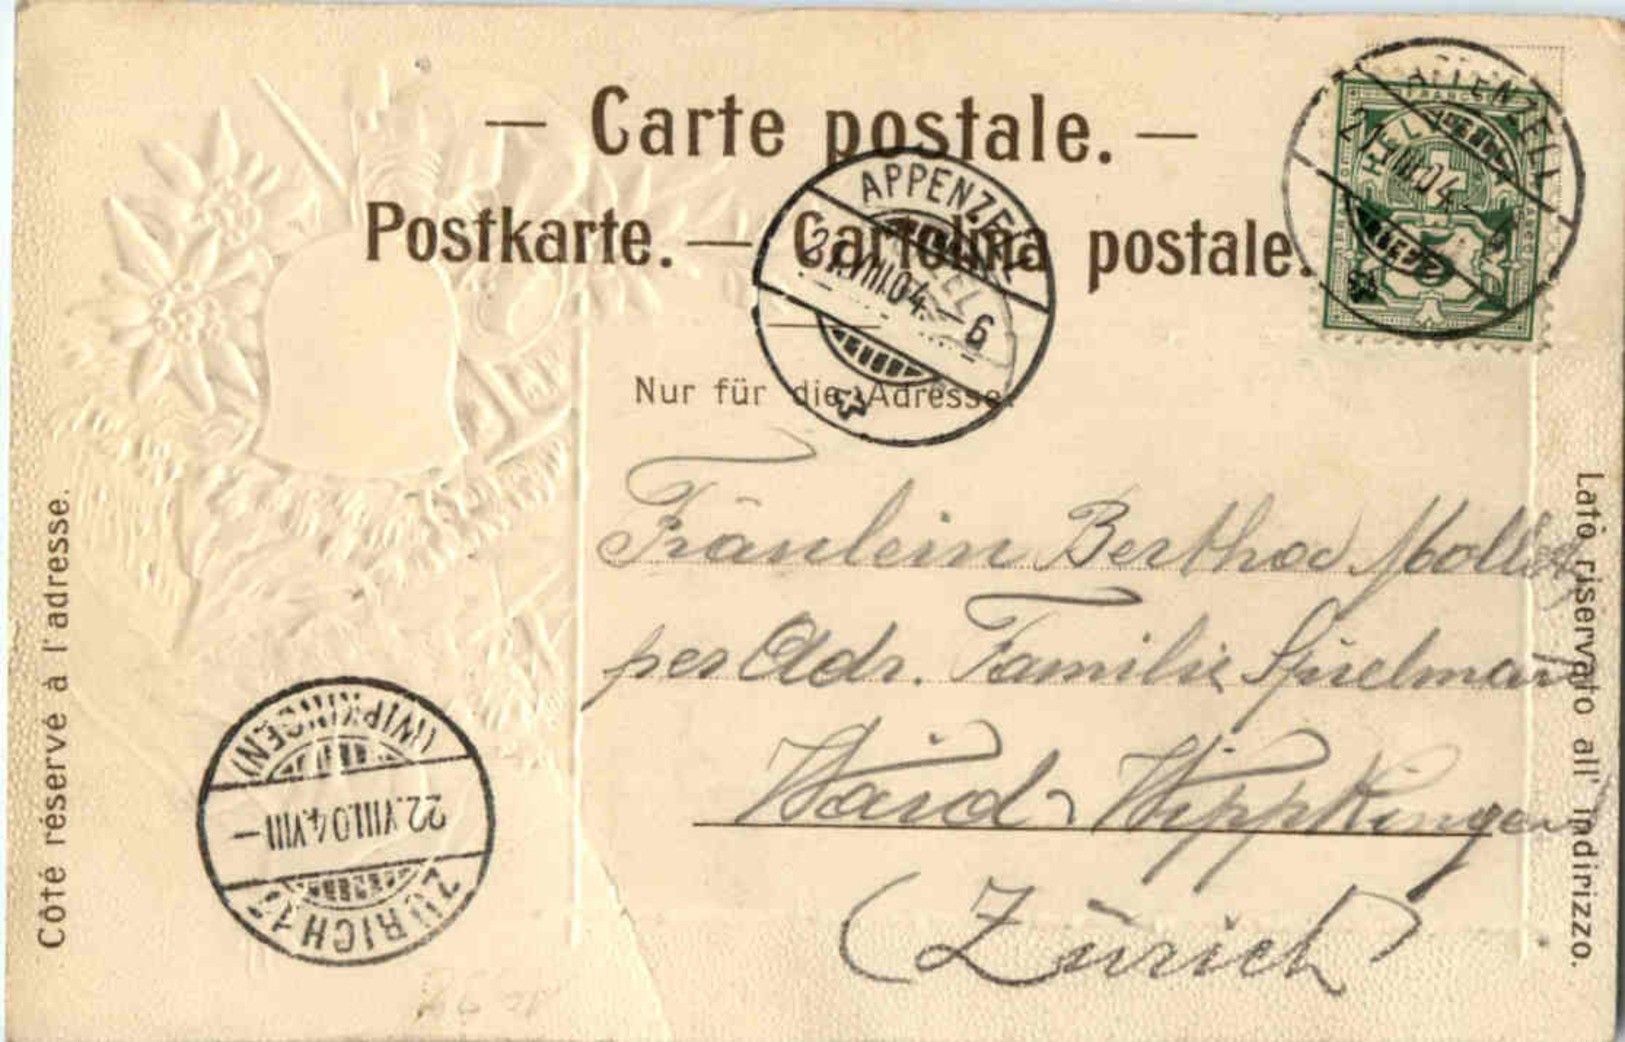 — Carte postale. —
Postkarte. — Cartolina postale.
APPENZELL
21.VIII.04.—6
APPENZELL
21.VIII.04.—
HELVETIA
5
Nur für die Adresse.
Fräulein Bertha
per Adr. Familie Spielmann
Waid Wippkingen
(Zürich)
Côté réservé à l'adresse.
Lato riservato all' indirizzo.
ZÜRICH
22.VIII.04.VIII—
(WIPKINGEN)